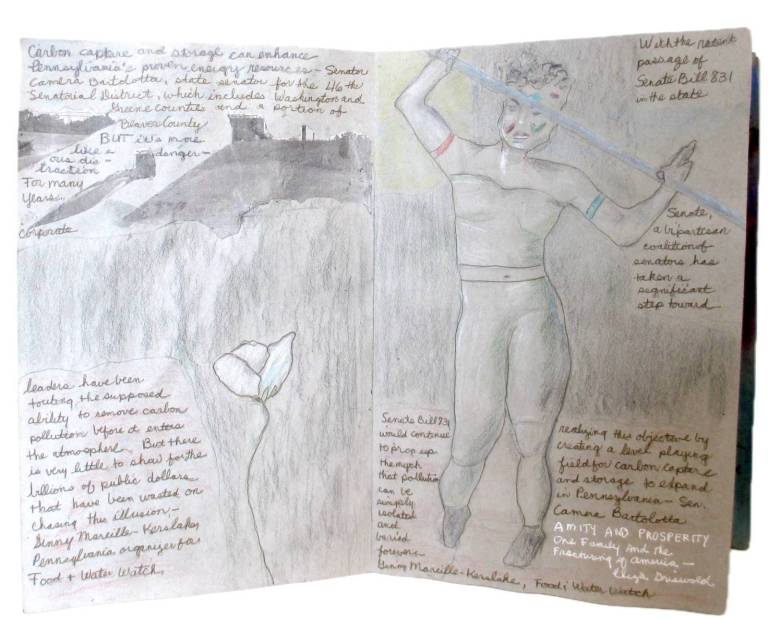 Carbon capture and storage can enhance
Pennsylvania's proven energy resources - Senator
Camera Bartolotta, state senator for the 46 th
Senatorial District, which includes Washington and
Greene Counties and a portion of
Beaver County
BUT it's more
like a danger-
ous dis-
traction
For many
Years...
Corporate
leaders have been
touting the supposed
ability to remove carbon
pollution before it enters
the atmosphere. But there
is very little to show for the
billions of public dollars
that have been wasted on
chasing this illusion -
Ginny Marcille-Kerslake,
Pennsylvania organizer for
Food + Water Watch
With the recent
passage of
Senate Bill 831
in the state
Senate,
a bipartisan
coalition of
senators has
taken a
significant
step toward
realizing this objective by
creating a level playing
field for carbon capture
and storage to expand
in Pennsylvania - Sen.
Camera Bartolotta
Senate Bill 831
would continue
to prop up
the myth
that pollution
can be
simply
isolated
and
buried
forever -
Ginny Marcille-Kerslake, Food & Water Watch
AMITY AND PROSPERITY
One Family and the
Fracturing of America -
Eliza Griswold